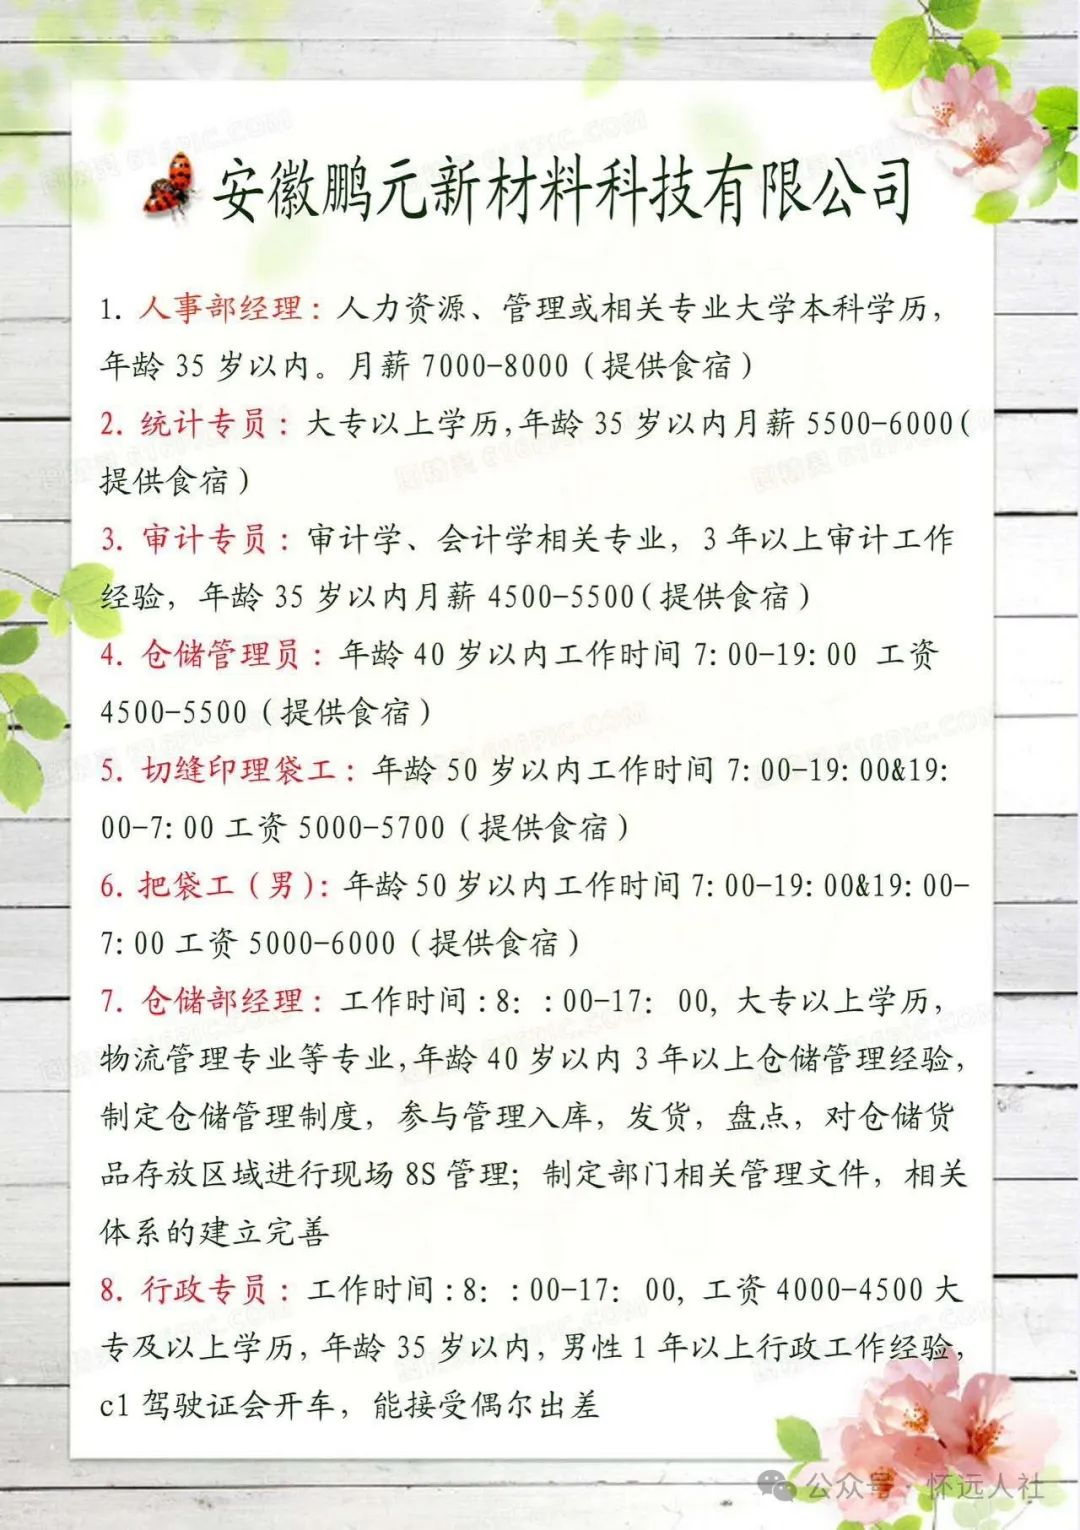 安徽鹏元新材料科技有限公司
1. 人事部经理：人力资源、管理或相关专业大学本科学历，
年龄 35 岁以内。月薪 7000-8000（提供食宿）
2. 统计专员：大专以上学历,年龄 35 岁以内月薪 5500-6000（
提供食宿）
3. 审计专员：审计学、会计学相关专业，3 年以上审计工作
经验，年龄 35 岁以内月薪 4500-5500（提供食宿）
4. 仓储管理员：年龄 40 岁以内工作时间 7: 00-19: 00 工资
4500-5500（提供食宿）
5. 切缝印理袋工：年龄 50 岁以内工作时间 7: 00-19: 00&19:
00-7: 00 工资 5000-5700（提供食宿）
6. 把袋工（男）：年龄 50 岁以内工作时间 7: 00-19: 00&19: 00-
7: 00 工资 5000-6000（提供食宿）
7. 仓储部经理：工作时间:8：:00-17：00, 大专以上学历，
物流管理专业等专业,年龄 40 岁以内 3 年以上仓储管理经验，
制定仓储管理制度，参与管理入库，发货，盘点，对仓储货
品存放区域进行现场 8S 管理；制定部门相关管理文件，相关
体系的建立完善
8. 行政专员：工作时间:8：:00-17：00, 工资 4000-4500 大
专及以上学历, 年龄 35 岁以内, 男性 1 年以上行政工作经验，
c1 驾驶证会开车，能接受偶尔出差
公众号·怀远人社